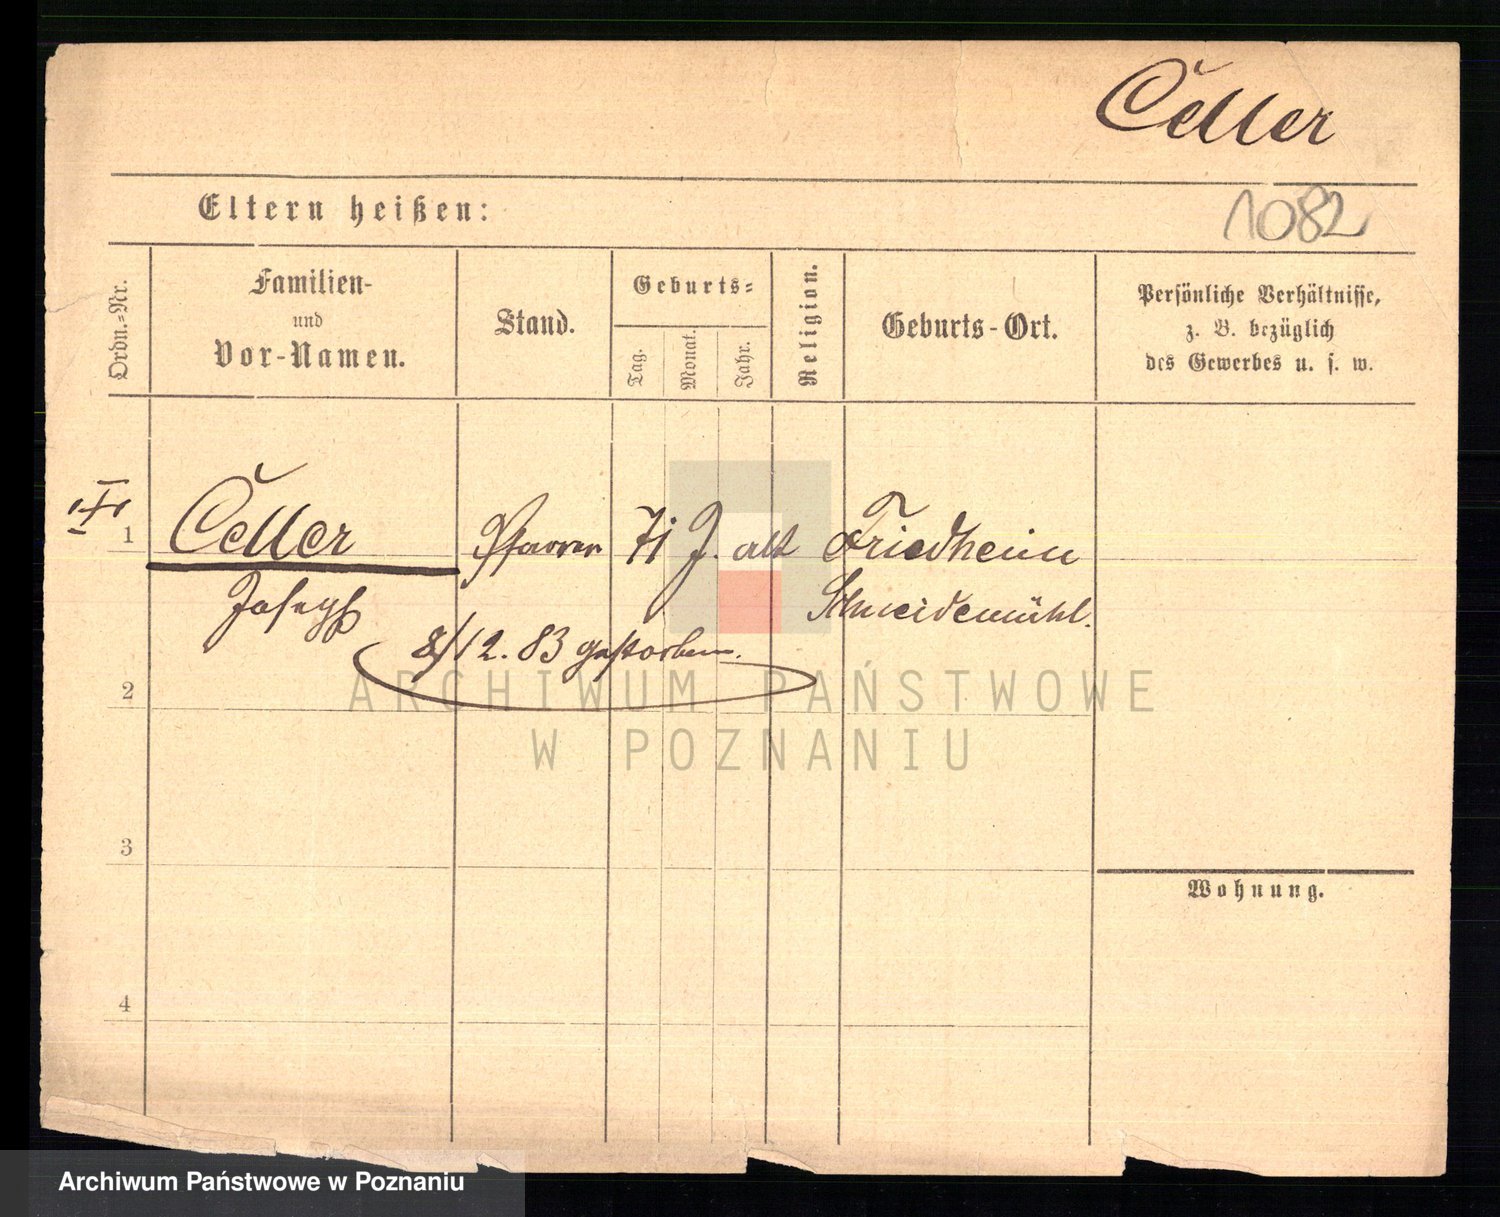 Čeller
1082
Eltern heißen:
Ordn.-Nr.
Familien-
und
Vor-Namen.
Stand.
Geburts-
Tag.
Monat.
Jahr.
Religion.
Geburts-Ort.
Persönliche Verhältnisse,
z. B. bezüglich
des Gewerbes u. s. w.
1
Čeller
Pfarrer
71 J. alt
Friedheim
Joseph
Schneidemühl.
8/12. 83 gestorben.
2
ARCHIWUM PAŃSTWOWE
W POZNANIU
3
Wohnung.
4
Archiwum Państwowe w Poznaniu